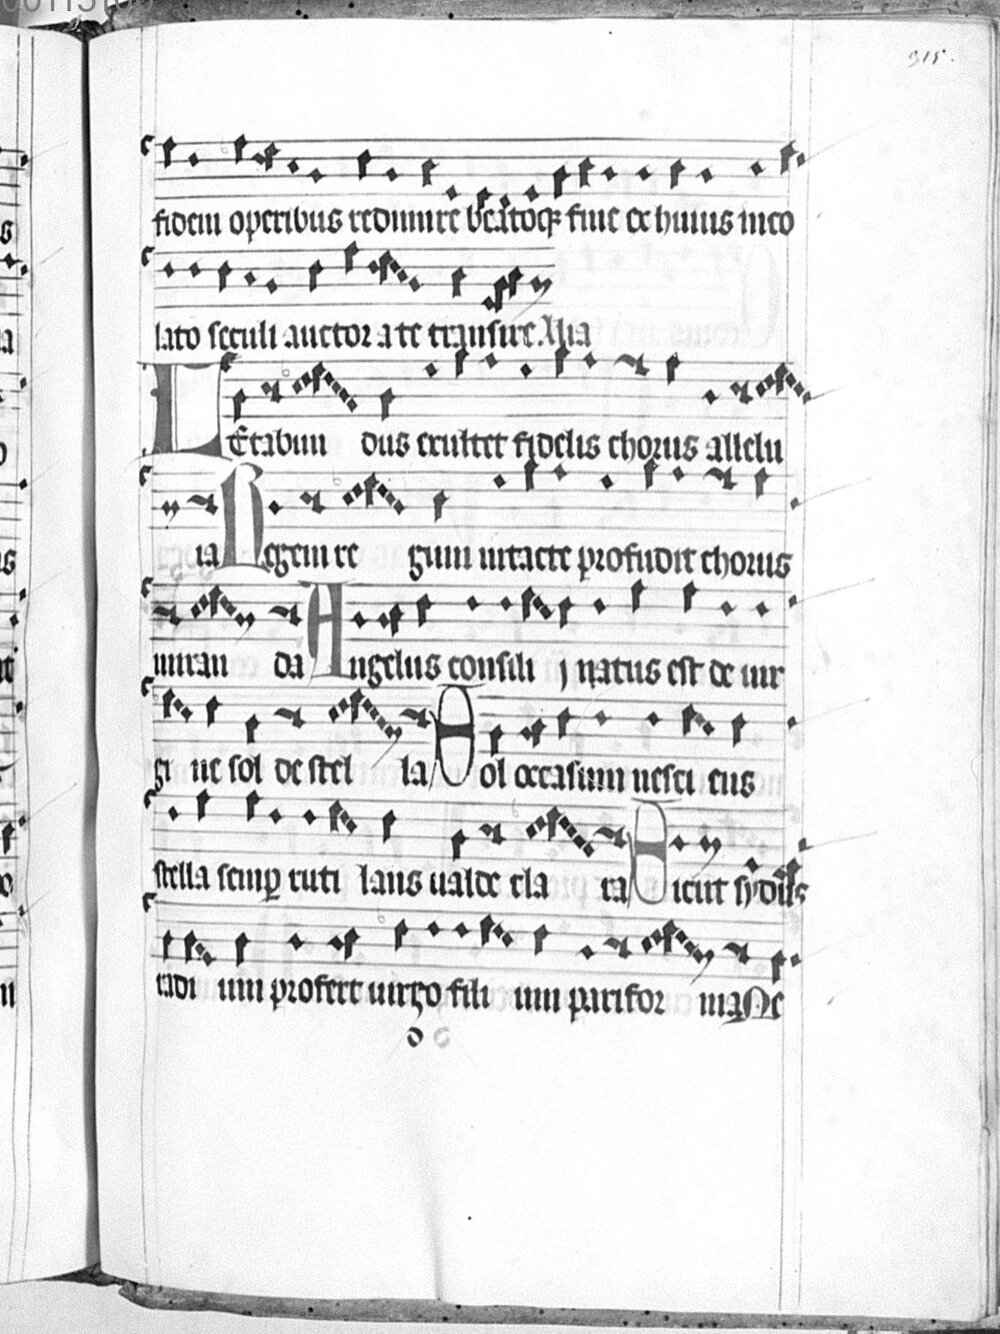 315.
fidem operibus redimire beatoq; fine ex huius inco
latu seculi auctor a te transire. A͞lia
LEtabun dus exultet fidelis chorus allelu
ia Regem re gum intacte profudit thorus
miran da Angelus consili j natus est de uir
gi ne sol de stel la Sol occasum nesci ens
stella semp ruti lans ualde cla ra Sicut sydus
radi um profert uirgo fili um pari for ma Ne